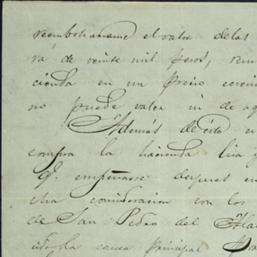 reembolsarame el valor de las
ra de veinte mil pesos, rem
cienda en un precio
no puede valer ni de ag
Además de esto
compra la hacienda
qe empeñarse despues en
cha consideracion con los
de San Pedro del Ala
causa principal